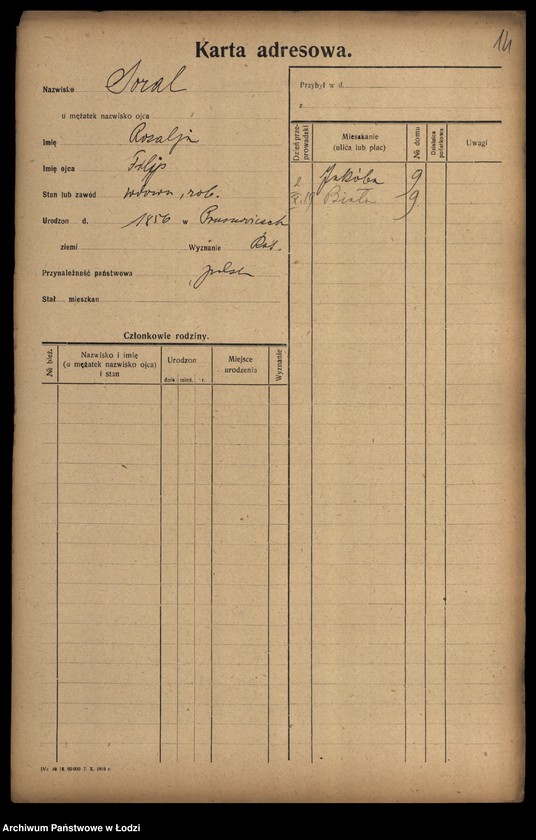 14
Karta adresowa.
Nazwisko Soral
u mężatek nazwisko ojca
Imię Rozalja
Imię ojca Filip
Stan lub zawód wdowa, rob.
Urodzon d. 1856 w
ziemi Wyznanie Kat.
Przynależność państwowa polsk
Stał mieszkan
Członkowie rodziny.
№ bież.
Nazwisko i imię (u mężatek nazwisko ojca) i stan
Urodzon
dnia mies. r.
Miejsce urodzenia
Wyznanie
Przybył w d.
z
Dzień przeprowadzki
Mieszkanie (ulica lub plac)
№ domu
Dzielnica podatkowa
Uwagi
Jakóba 9
Biała 9
Archiwum Państwowe w Łodzi